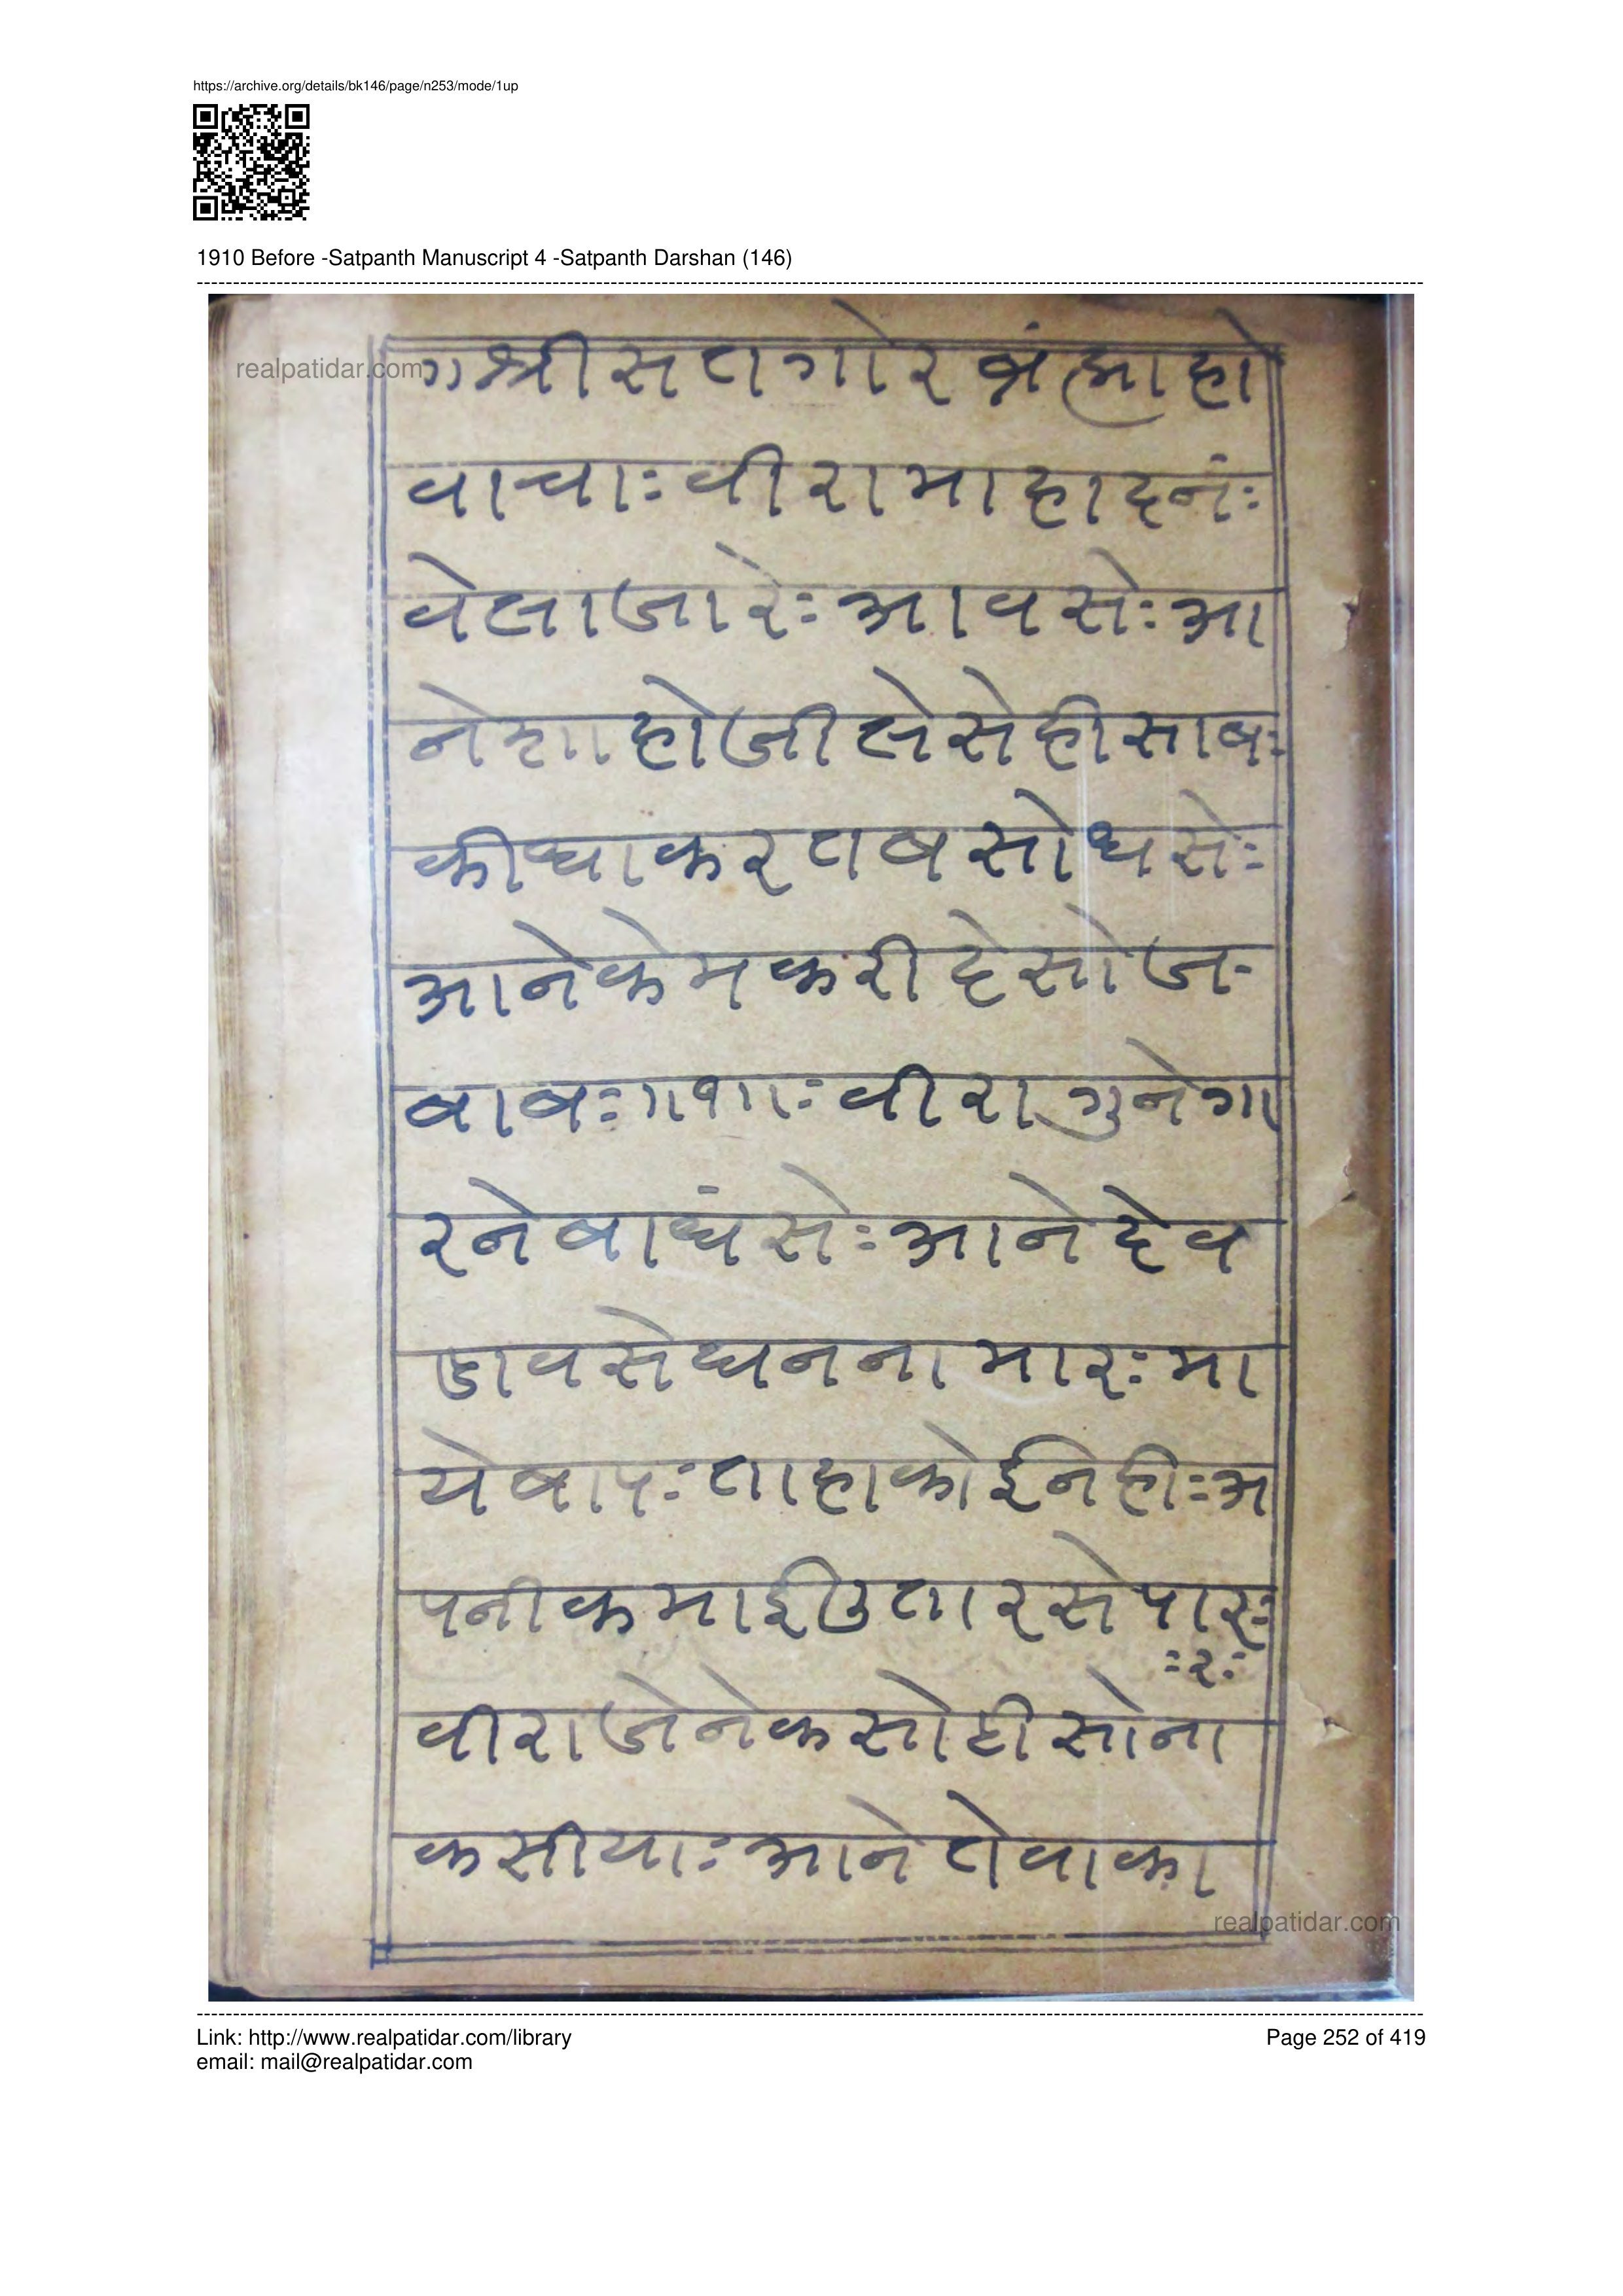 https://archive.org/details/bk146/page/n253/mode/1up
1910 Before -Satpanth Manuscript 4 -Satpanth Darshan (146)
realpatidar.com
ग श्री स त गो र ब्रंह्मा हो
वा चाः वी रा मा हा द नंः
वे ला जा रेः आ व सेः आ
ने शा हो जी ले से ही सा बः
की धा क र त ब सो ध सेः
आ ने के म क री दे सो ज-
बा बः ॥१॥ः वी रा गु ने गा
र ने बा धं सेः आ ने दे व
डा व से घ न ना मा रः मा
ये बा पः ता हा को ई ने हीः अ
प नी क मा ई उ ता र से पा रः
ः२ः
वी रा जे ने क सो टी सो ना
क सी याः आ ने ते वा का
realpatidar.com
Link: http://www.realpatidar.com/library
Page 252 of 419
email: mail@realpatidar.com